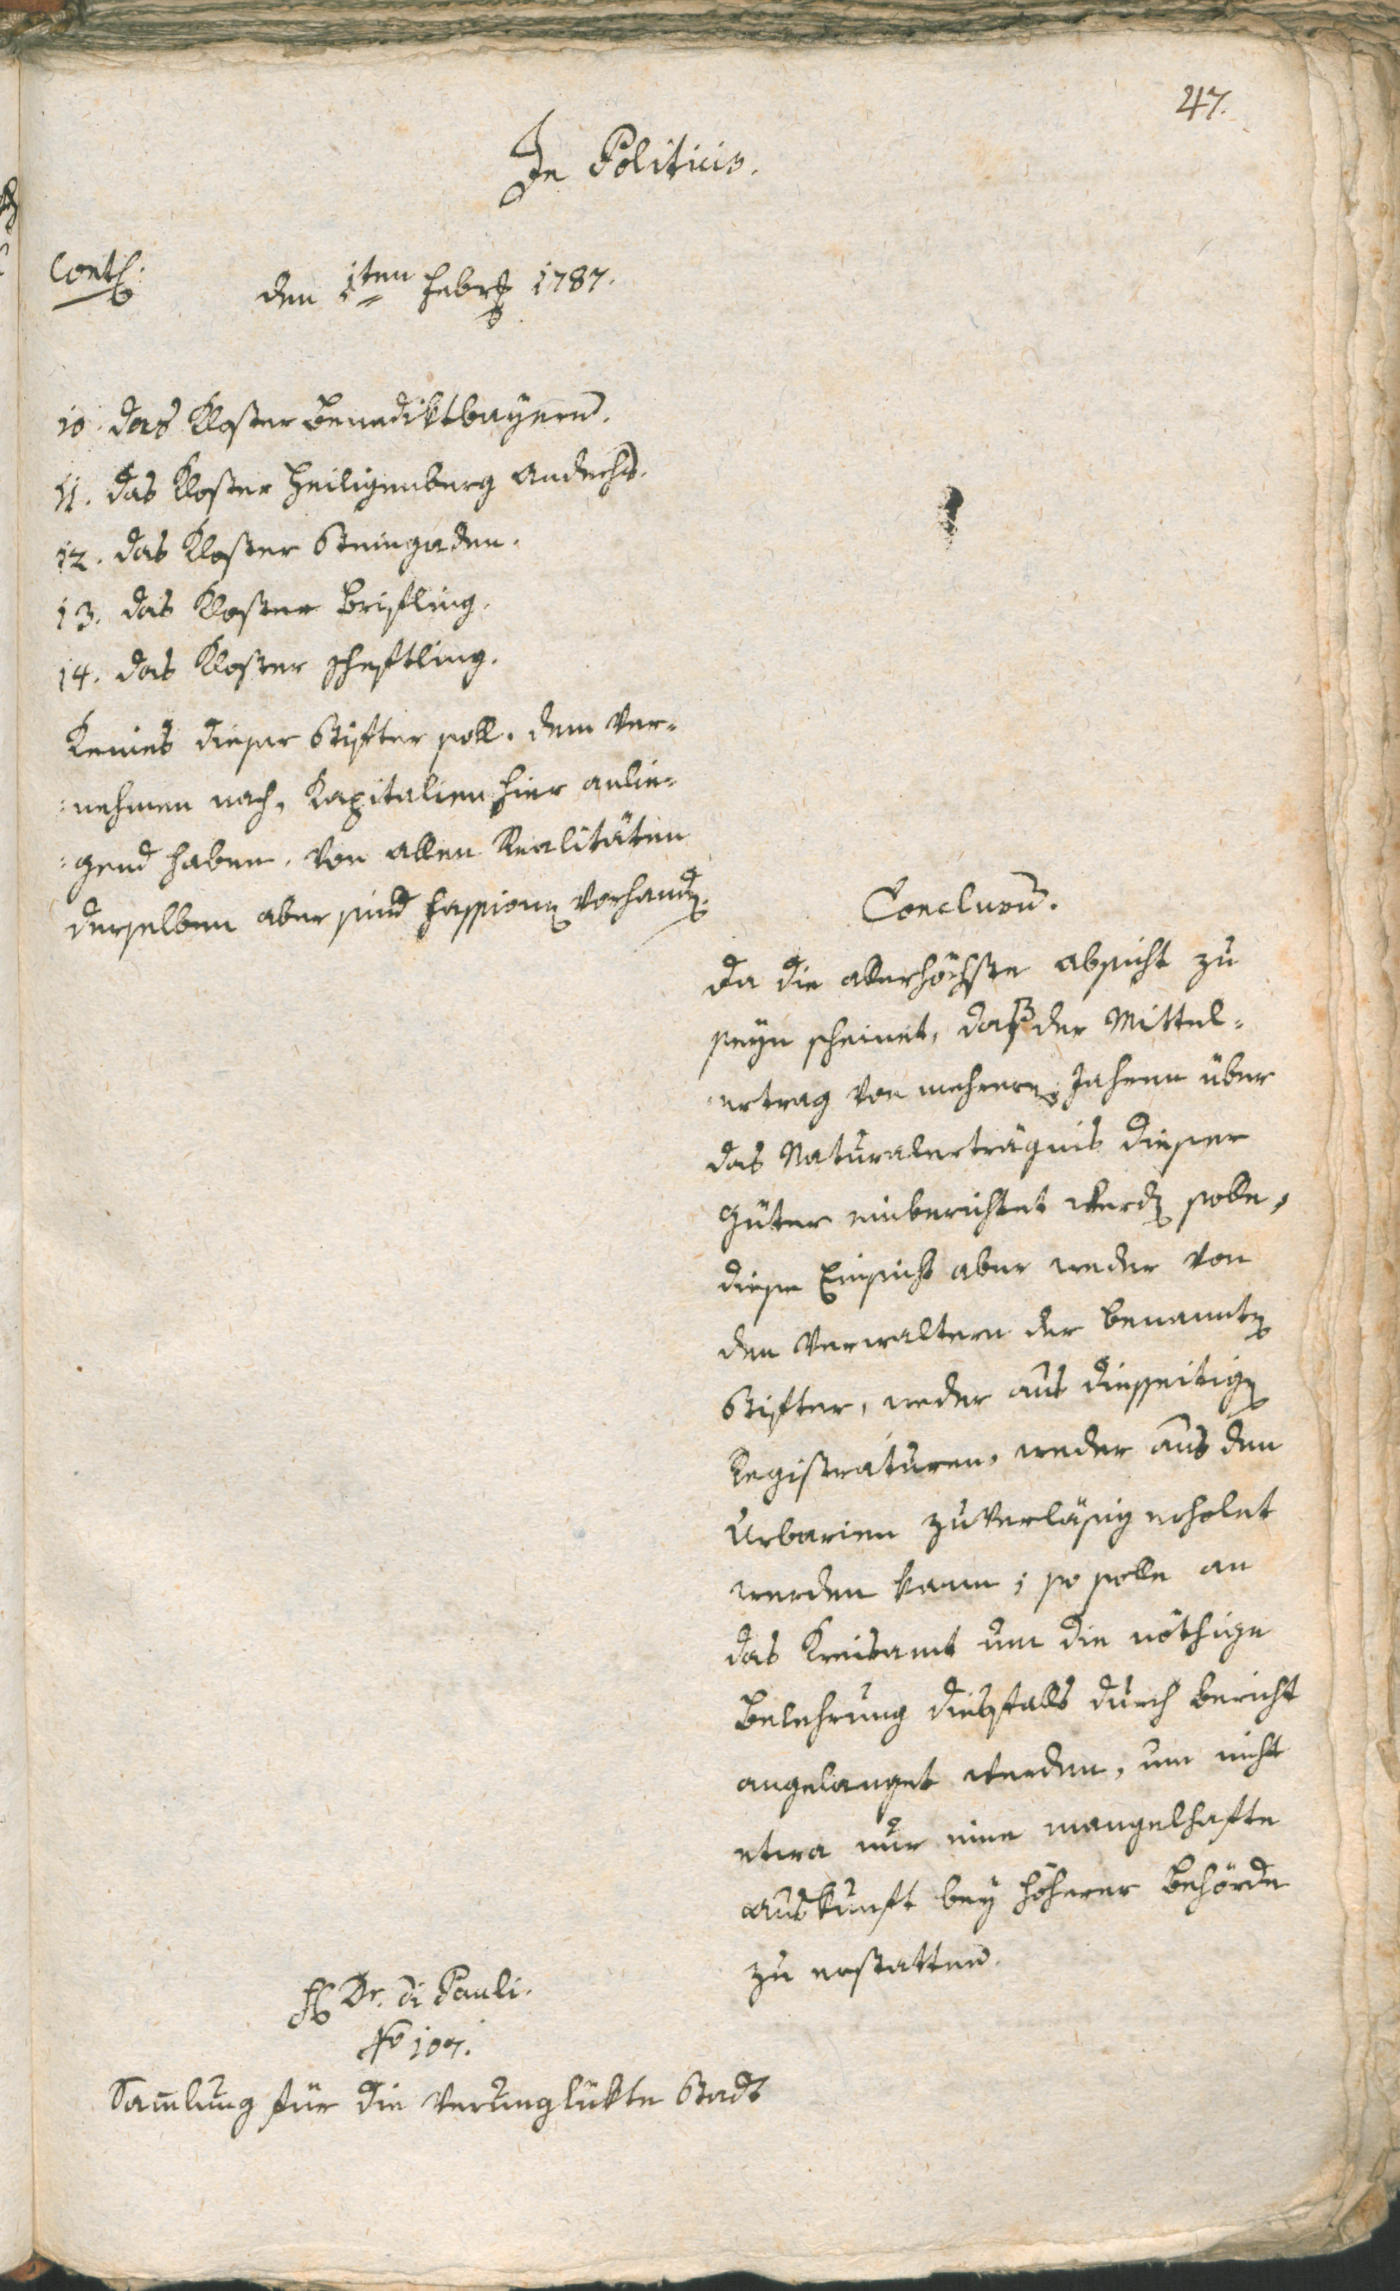 47.
In Politicis.
den 1ten Febr 1787.
10. das Kloster Benediktbayern.
11. das Kloster Heiligenberg Andechs.
12. das Kloster Steingaden.
13. das Kloster
14. das Kloster Scheftling.
Keines dieser Stifter soll. dem Ver-
:nehmen nach, Kapitalien hier anlie-
:gend haben. Von allen Realitäten
derselben aber sind Fassionen Vorhanden.
Conclusum.
Da die allerhöchste absicht zu
seyn scheinet, daß der Mittel-
:ertrag von mehreren Jahren über
das Naturalerträgnis dieser
Güter einberichtet werden solle,
diese Einsicht aber weder von
den Verwaltern der benannten
Stifter, weder aus diesseitigen
Registraturen, weder aus den
Urbarien zuverläsig erholet
werden kann; so solle an
das Kreisamt um die nöthige
Belehrung diesfalls durch Bericht
angelanget werden, um nicht
etwa nur eine mangelhafte
Auskunft bey höherer Behörde
zu erstatten.
H Dr. di Pauli.
No 107.
Samlung für die Verunglükte Stadt